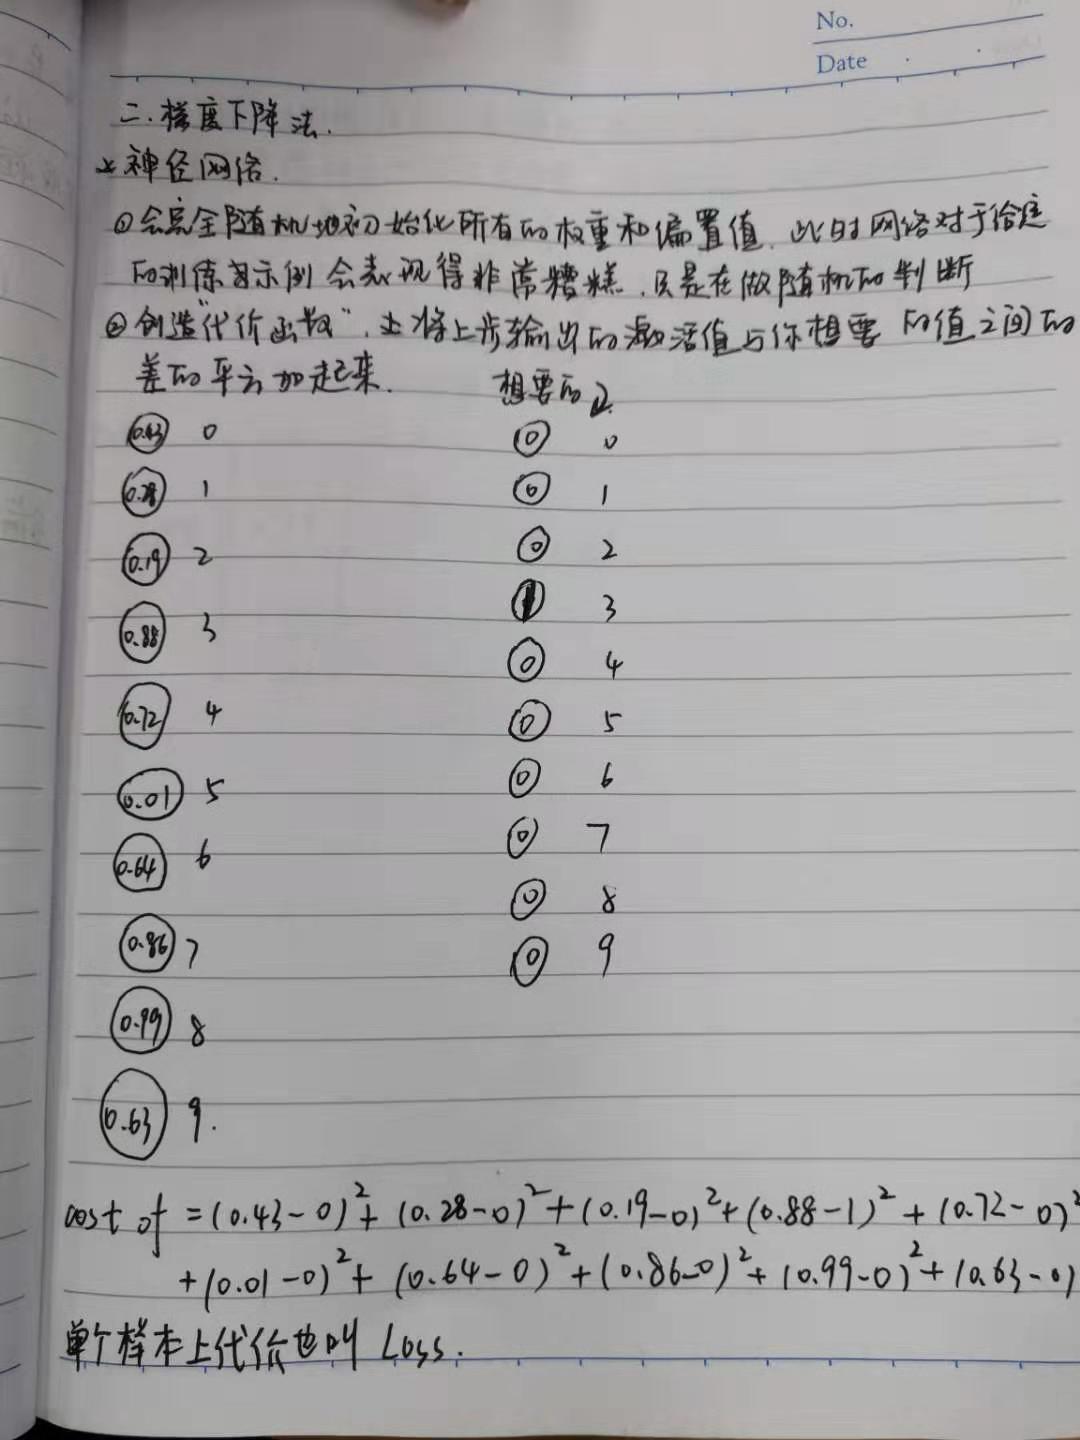 No.
Date
二.梯度下降法.
神经网络.
①会完全随机地初始化所有的权重和偏置值.此时网络对于给定
的训练示例会表现得非常糟糕.只是在做随机的判断
②创造"代价函数".将上步输出的激活值与你想要的值之间的
差的平方加起来. 想要的
0.43 0 0 0
0.28 1 0 1
0.19 2 0 2
0.88 3 1 3
0.72 4 0 4
0.01 5 0 5
0.64 6 0 6
0.86 7 0 7
0.99 8 0 8
0.63 9. 0 9
cost of = (0.43-0)²+(0.28-0)²+(0.19-0)²+(0.88-1)²+(0.72-0)²
+(0.01-0)²+(0.64-0)²+(0.86-0)²+(0.99-0)²+(0.63-0)
单个样本上代价也叫 Loss.